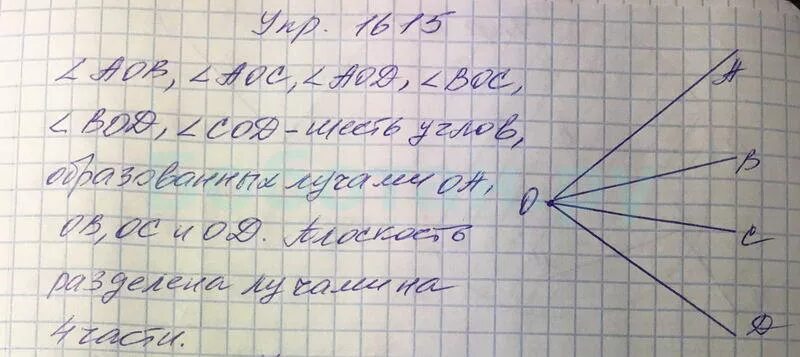 Упр. 1615
∠AOB, ∠AOC, ∠AOD, ∠BOC,
∠BOD, ∠COD - шесть углов,
образованных лучами OA,
OB, OC и OD. Плоскость
разделена лучами на
4 части.
A
B
O
C
D